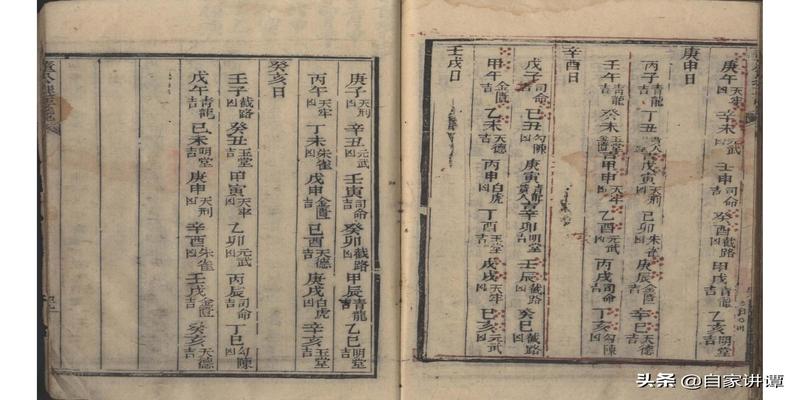 庚午天牢凶 辛未元武凶 壬申司命吉 癸酉截路凶 甲戌青龍吉 乙亥明堂吉
庚申日
丙子青龍吉 丁丑貴人吉 戊寅天刑凶 己卯朱雀凶 庚辰金匱吉 辛巳天德吉
壬午 癸未玉堂 甲申天牢凶 乙酉元武凶 丙戌司命吉 丁亥勾陳凶
辛酉日
戊子司命吉 己丑勾陳凶 庚寅青龍貴人吉 辛卯明堂吉 壬辰截路凶 癸巳截路凶
甲午金匱吉 乙未天德吉 丙申白虎凶 丁酉玉堂吉 戊戌天牢凶 己亥元武凶
壬戌日
庚子天刑凶 辛丑元武凶 壬寅司命吉 癸卯截路凶 甲辰青龍吉 乙巳明堂吉
丙午天牢凶 丁未朱雀凶 戊申金匱吉 己酉天德吉 庚戌白虎凶 辛亥玉堂吉
癸亥日
壬子截路凶 癸丑玉堂吉 甲寅天牢凶 乙卯元武凶 丙辰司命吉 丁巳勾陳凶
戊午青龍吉 己未明堂吉 庚申天刑凶 辛酉朱雀凶 壬戌金匱吉 癸亥天德吉
头条 @自家讲谭